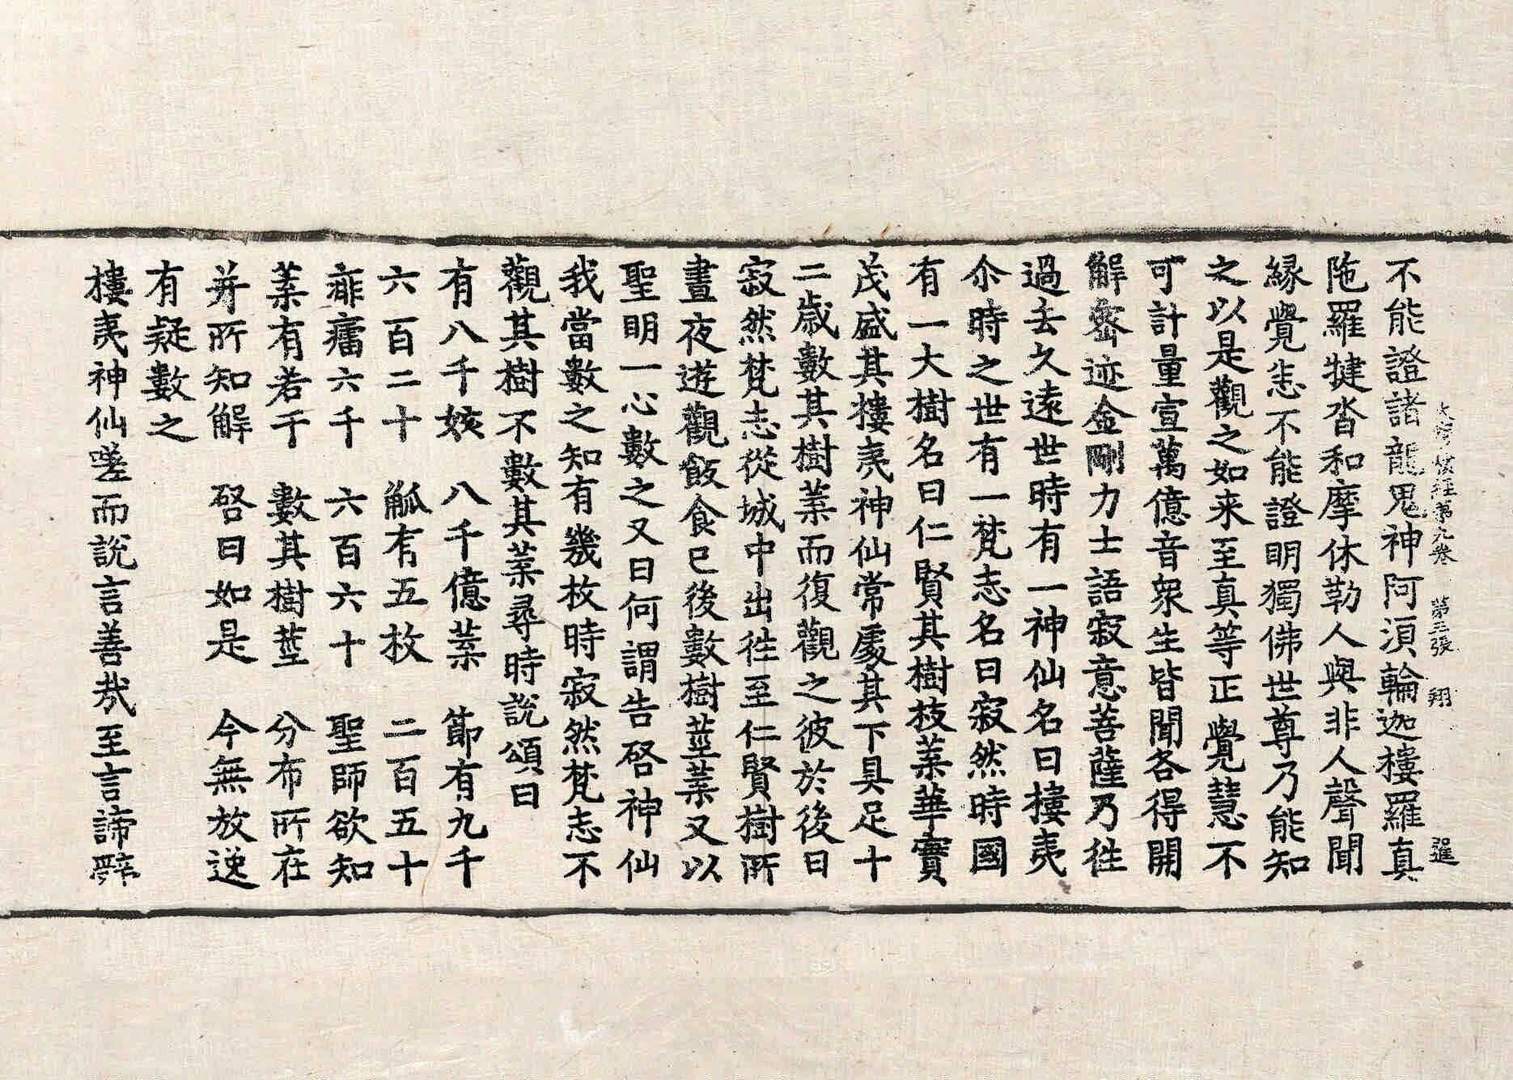 大寶積經第九卷 第三張 翔
不能證諸龍鬼神阿須輪迦樓羅真
陁羅犍沓和摩休勒人與非人聲聞
緣覺恙不能證明獨佛世尊乃能知
之以是觀之如来至真等正覺慧不
可計量宣萬億音衆生皆聞各得開
解密迹金剛力士語寂意菩薩乃徃
過去久遠世時有一神仙名曰樓夷
尒時之世有一梵志名曰寂然時國
有一大樹名曰仁賢其樹枝葉華實
茂盛其樓夷神仙常處其下具足十
二歲數其樹葉而復觀之彼於後日
寂然梵志從城中出徃至仁賢樹所
晝夜遊觀飯食已後數樹莖葉又以
聖明一心數之又曰何謂告啓神仙
我當數之知有幾枚時寂然梵志不
觀其樹不數其葉尋時說頌曰
有八千姟 八千億葉 節有九千
六百二十 觚有五枚 二百五十
痱癗六千 六百六十 聖師欲知
葉有若干 數其樹莖 分布所在
并所知解 啓曰如是 今無放逸
有疑數之
樓夷神仙嗟而說言善哉至言諦